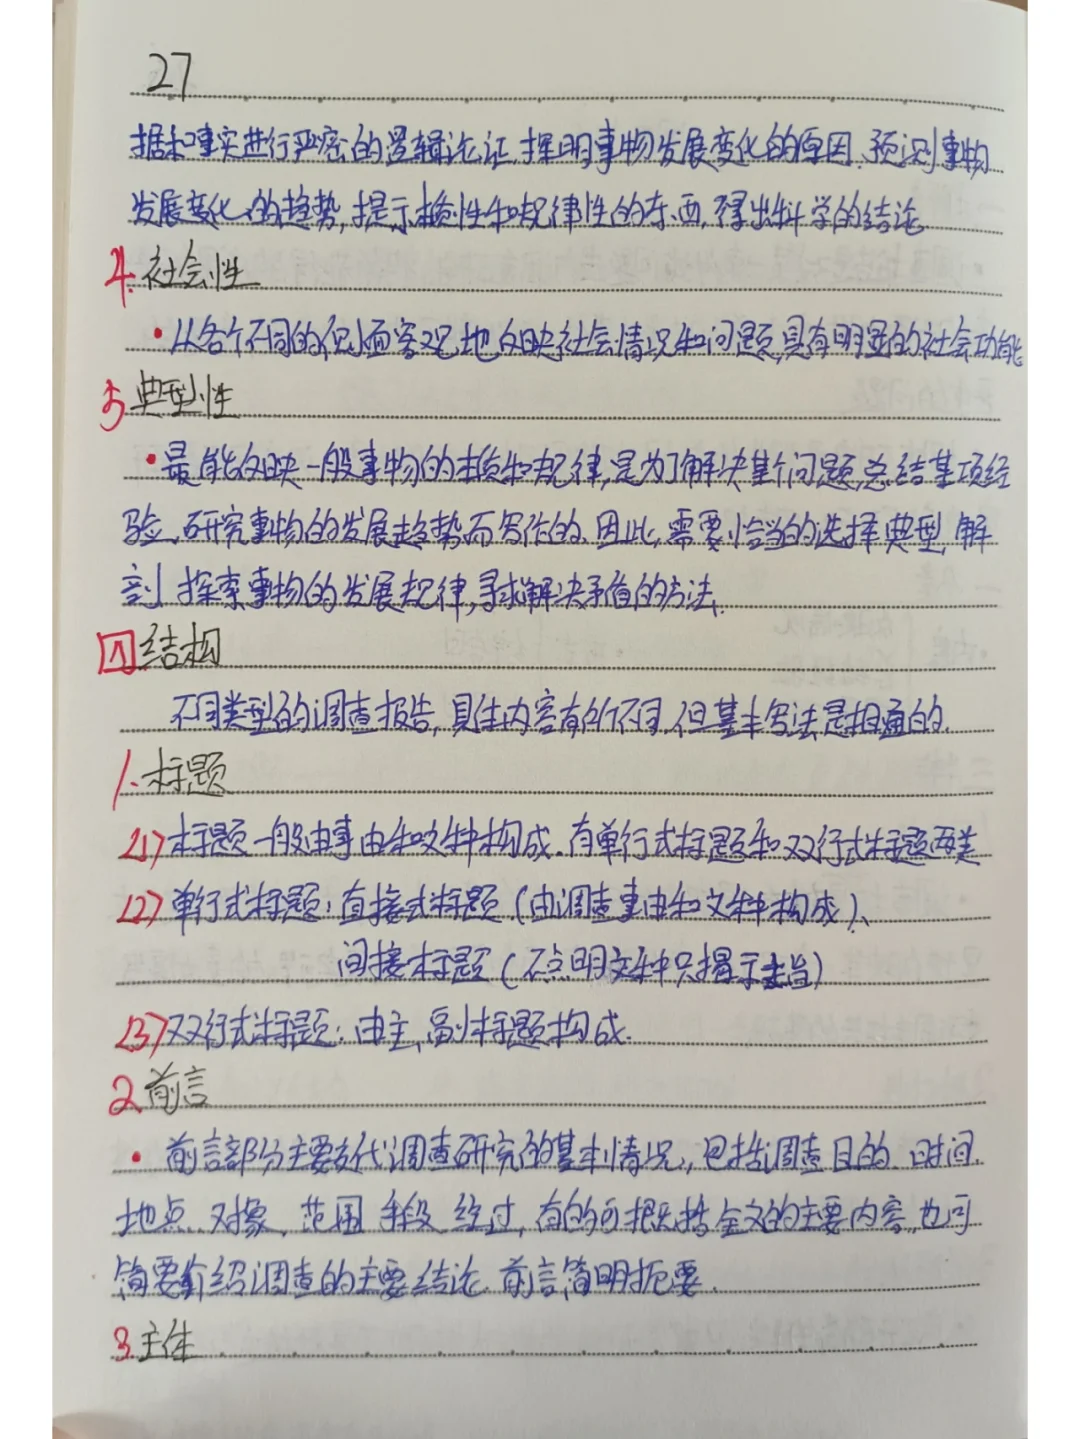 27
据和事实进行严密的逻辑论证,探明事物发展变化的原因,预测事物
发展变化的趋势,提示本质性和规律性的东西,得出科学的结论
4.社会性
•从各个不同的侧面客观地反映社会情况和问题,具有明显的社会功能
5典型性
•最能反映一般事物的本质和规律,是为了解决某个问题,总结某项经
验、研究事物的发展趋势而写作的,因此,需要恰当的选择典型,解
剖 探索事物的发展规律,寻求解决矛盾的方法、
四结构
不同类型的调查报告,具体内容有所不同,但基本写法是相通的.
1.标题
(1)标题一般由事由和文种构成.有单行式标题和双行式标题两类
(2)单行式标题:直接式标题(由调查事由和文种构成)、
间接标题(不点明文种只揭示主旨)
(3)双行式标题:由主、副标题构成.
2.前言
•前言部分主要交代调查研究的基本情况,包括调查目的 时间、
地点、对象、范围 手段 经过,有的可概括全文的主要内容,也可
简要介绍调查的主要结论.前言简明扼要.
3.主体